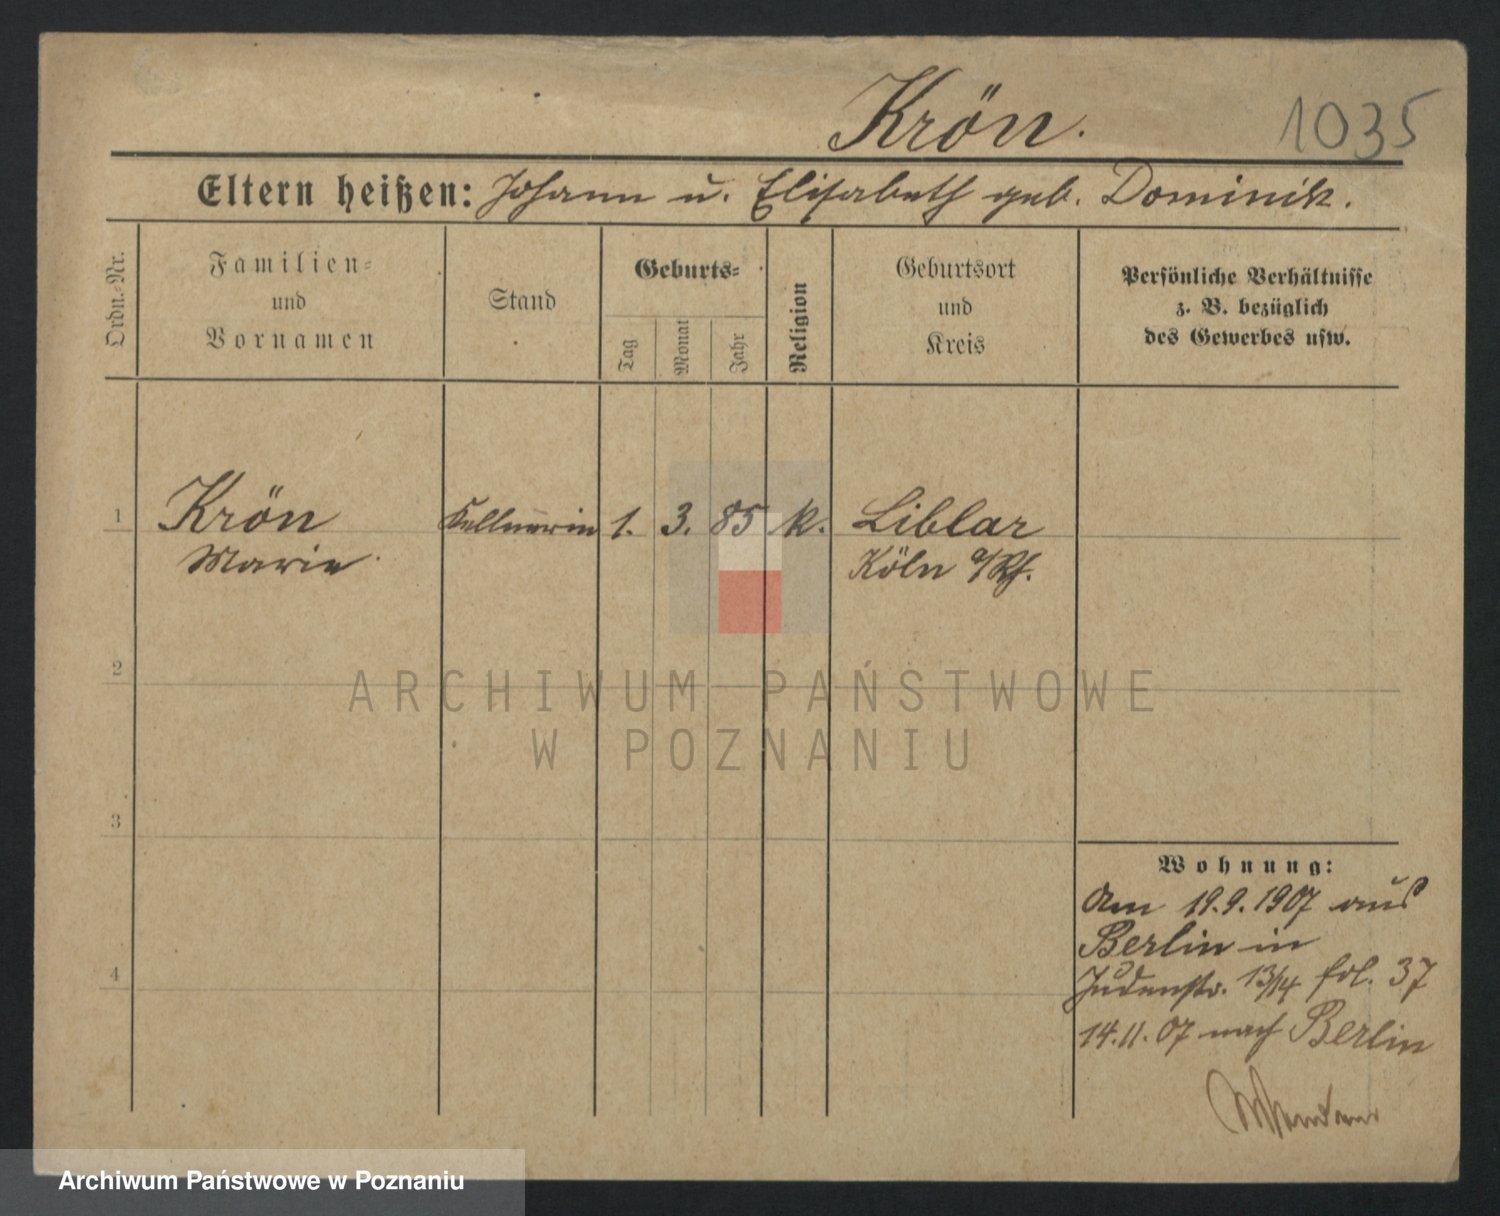 Krön. 1035
Eltern heißen: Johann u. Elisabeth geb. Dominik.
Ordn.-Nr.
Familien-
und
Vornamen
Stand
Geburts-
Tag
Monat
Jahr
Religion
Geburtsort
und
Kreis
Persönliche Verhältnisse
z. B. bezüglich
des Gewerbes usw.
1 Krön Kellnerin 1. 3. 85 k. Liblar
Marie Köln a/Rh.
2
ARCHIWUM PAŃSTWOWE
W POZNANIU
3
Wohnung:
Am 19.9.1907 aus
Berlin in
4
Judenstr. 13/14 fol. 37
14.11.07 nach Berlin
Archiwum Państwowe w Poznaniu